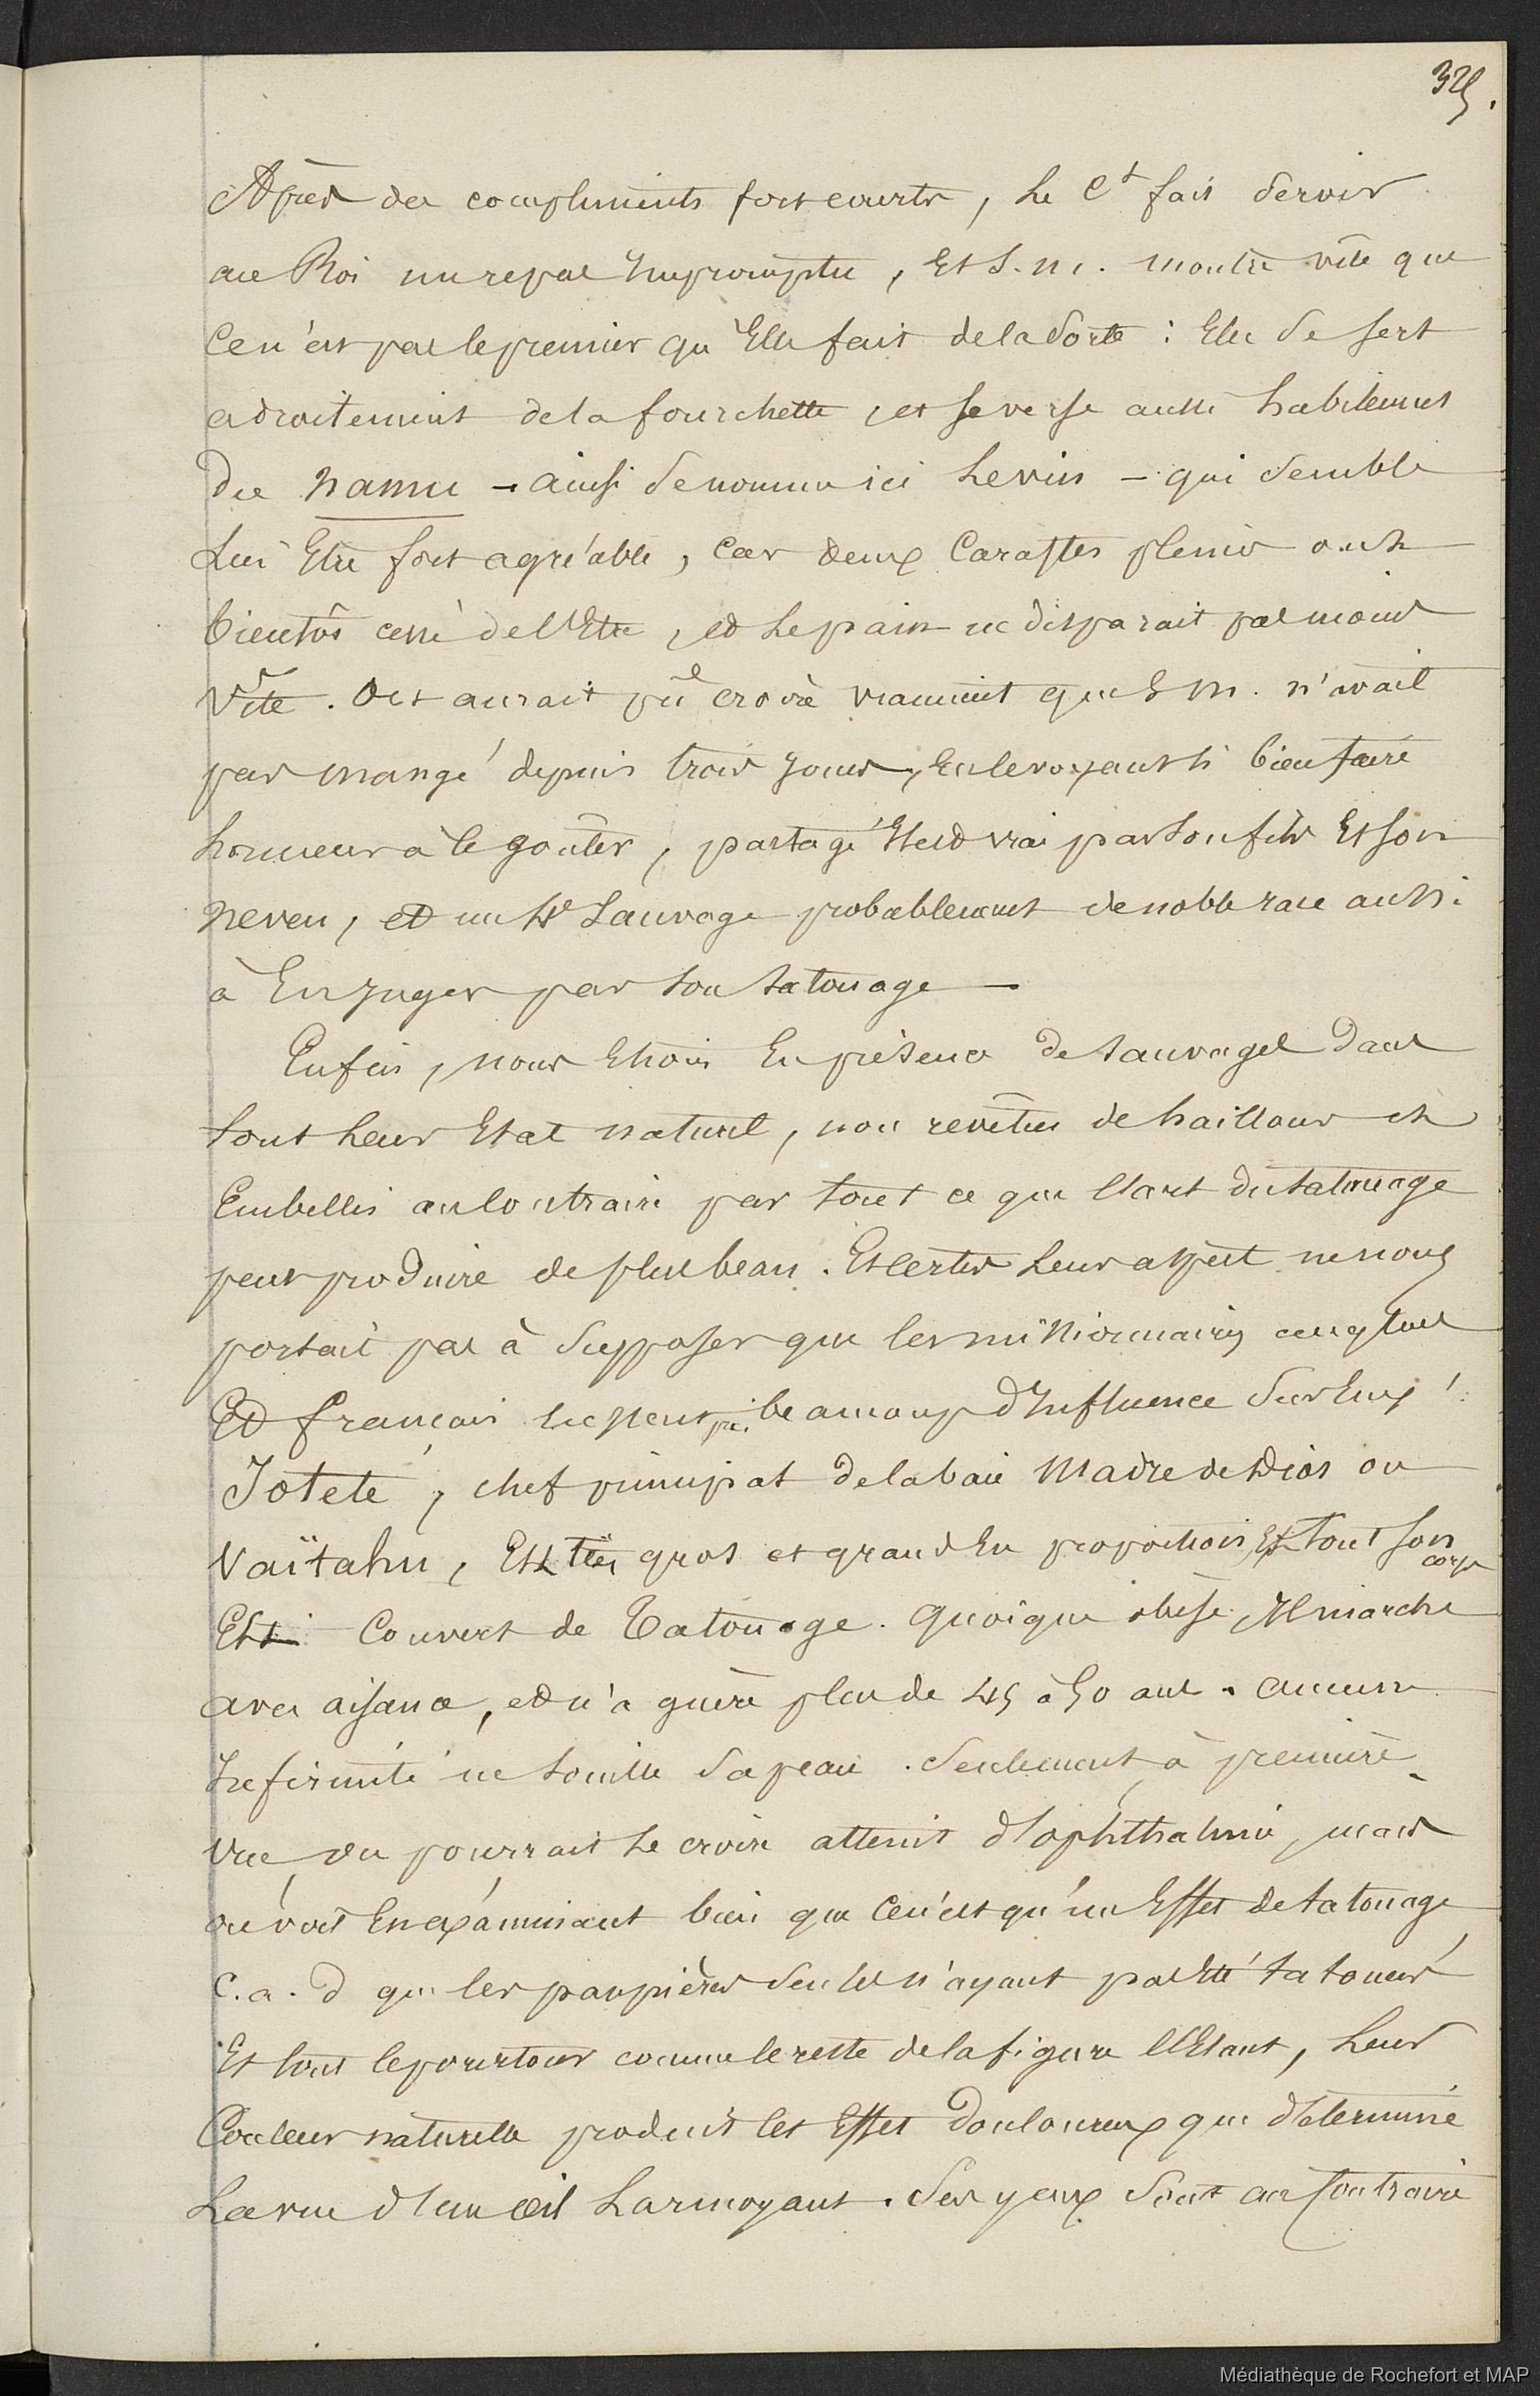 325.
Après des compliments fort courts, le Ct fait servir
au Roi un repas impromptu, Et S. M. montre vite que
Ce n'est pas le premier qu'Elle fait de la sorte : Elle se sert
adroitement de la fourchette, et se verse aussi habilement
du namu - ainsi se nomme ici le vin - qui semble
lui Etre fort agréable, Car deux Caraffes pleines ont
bientôt cessé de l'Etre, et le pain ne disparait pas moins
vîte. On aurait pû croire vraiment que S M. n'avait
pas mangé depuis trois jours, En le voyant si bien faire
honneur à ce goûter, partagé Il est vrai par son fils Et son
neveu, et un 4e Sauvage probablement de noble race aussi
à En juger par son tatouage —
Enfin, nous Etions En présence de sauvages dans
tout leur Etat naturel, non revêtus de haillons et
Embellis au contraire par tout ce que l'art du tatouage
peut produire de plus beau. Et certes leur aspect ne nous
portait pas à supposer que les missionnaires anglais
Et français eussent pris beaucoup d'Influence sur Eux !
Jotété, chef principal de la baie Madre de Dios ou
Vaïtahu, Est très gros et grand En proportion, Et tout son corps
Est Couvert de Tatouage. Quoique obèse, Il marche
avec aisance, et n'a guère plus de 45 à 50 ans. aucune
Infirmité ne souille sa peau. Seulement à première
vue on pourrait le croire atteint d'ophthalmie, mais
on voit En examinant bien que Ce n'est qu'un Effet de tatouage
C. a. d que les paupières seules n'ayant pas Eté tatouées
Et tout le pourtour comme le reste de la figure l'Etant, leur
Couleur naturelle produit cet Effet douloureux que détermine
La vue d'un œil Larmoyant. Ses yeux sont au Contraire
Médiathèque de Rochefort et MAP